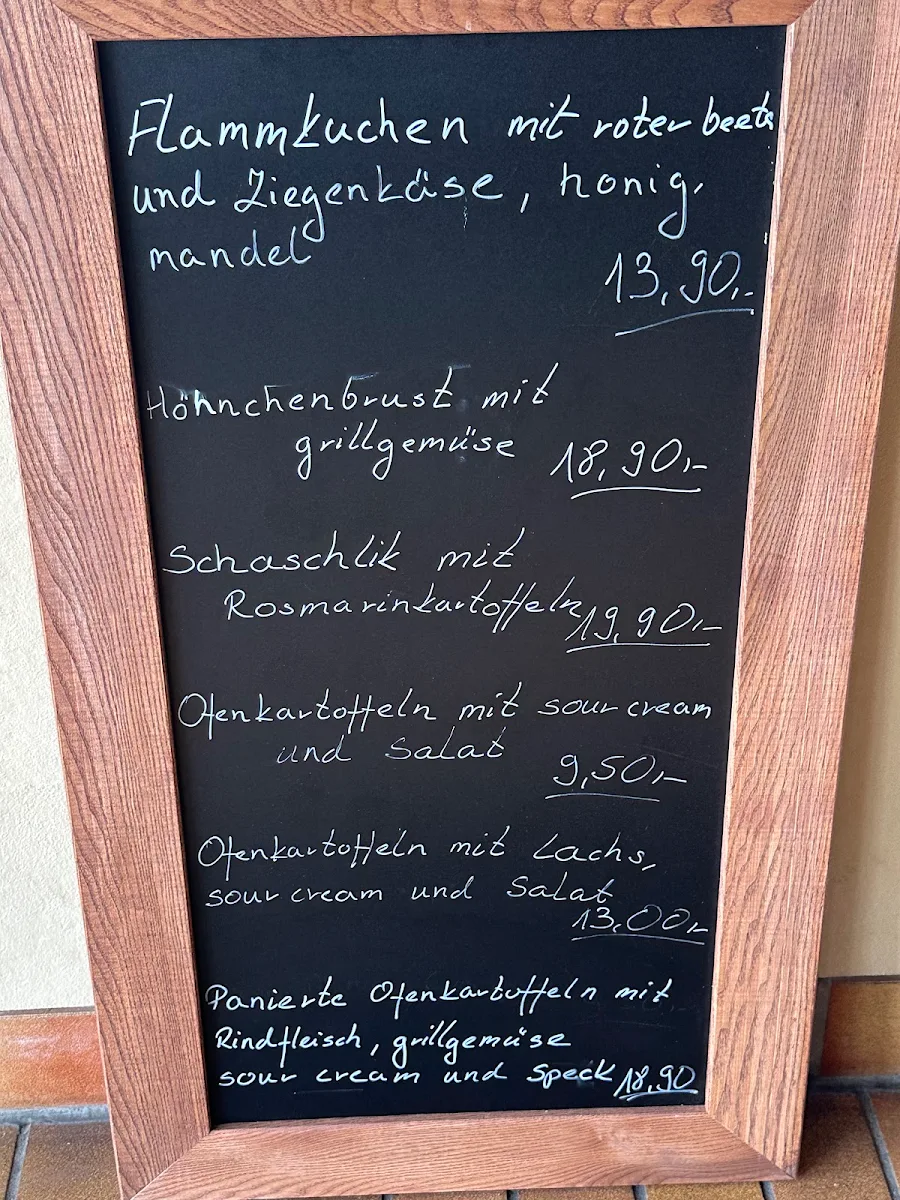 Flammkuchen mit roter beete
und Ziegenkäse, honig,
mandel
13,90,-
Höhnchenbrust mit
grillgemüse 18,90,-
Schaschlik mit
Rosmarinkartoffeln 19,90,-
Ofenkartoffeln mit sour cream
und Salat
9,50,-
Ofenkartoffeln mit Lachs,
sour cream und Salat
13,00,-
Panierte Ofenkartoffeln mit
Rindfleisch, grillgemüse
sour cream und Speck 18,90